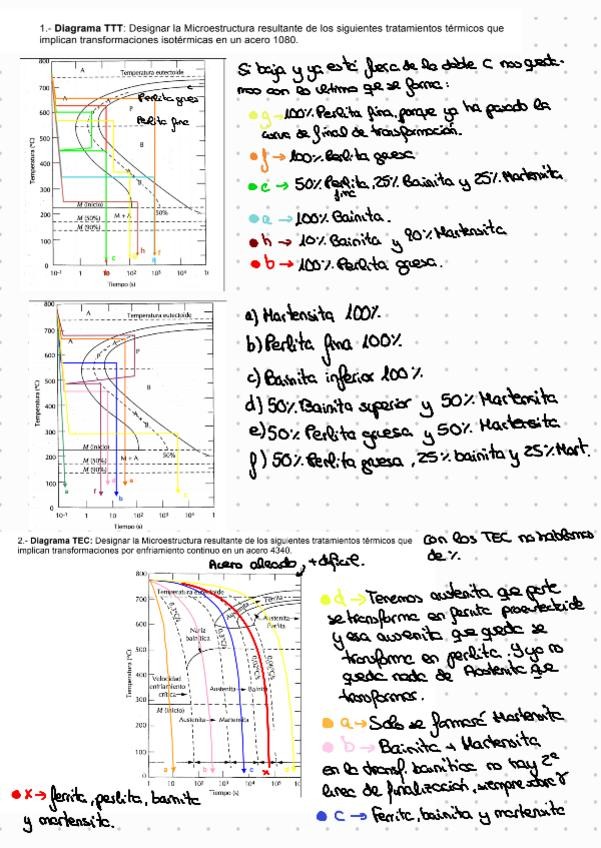 1.- Diagrama TTT: Designar la Microestructura resultante de los siguientes tratamientos térmicos que
implican transformaciones isotérmicas en un acero 1080.
Si baja y ya está fuera de la doble C nos queda-
mos con lo ultimo que se forma:
g → 100% Perlita fina, porque ya ha pasado la
curva de final de transformación.
f → 100% Perlita gruesa
c → 50% Perlita, 25% Bainita y 25% Martensita
fina
a → 100% Bainita.
h → 10% Bainita y 90% Martensita
b → 100% Perlita gruesa.
800
700
600
500
400
300
200
100
0
Temperatura (°C)
A
Temperatura eutectoide
Perlita grues
Perlita fina
A
P
B
A
B
M (inicio)
M (50%)
M (90%)
M + A
50%
c
b
h
f
10-1
1
10
10²
10³
10⁴
Tiempo (s)
a) Martensita 100%
b) Perlita fina 100%
c) Bainita inferior 100%
d) 50% Bainita superior y 50% Martensita
e) 50% Perlita gruesa y 50% Martensita
f) 50% Perlita gruesa, 25% bainita y 25% Mart.
800
700
600
500
400
300
200
100
0
Temperatura (°C)
A
Temperatura eutectoide
A
P
B
A
B
M (inicio)
M (50%)
M (90%)
M + A
50%
a
f
b
c
10-1
1
10
10²
10³
10⁴
Tiempo (s)
2.- Diagrama TEC: Designar la Microestructura resultante de los siguientes tratamientos térmicos que
implican transformaciones por enfriamiento continuo en un acero 4340.
con los TEC no hablamos
de %.
Acero aleado, + difícil.
d → Tenemos austenita que parte
se transforma en ferrita proeutectoide
y esa austenita que queda se
transforma en perlita. Y ya no
queda nada de Austenita que
transformar.
a → Solo se formará Martensita
b → Bainita + Martensita
en la transf. bainítica no hay 2ª
línea de finalización, siempre
c → Ferrita, bainita y martensita
x → ferrita, perlita, bainita
y martensita.
800
700
600
500
400
300
200
100
0
Temperatura (°C)
Temperatura eutectoide
Ferrita
Austenita
Perlita
Nariz
bainítica
Velocidad
enfriamiento
crítica
Austenita → Bainita
M (inicio)
Austenita → Martensita
8,3°C/s
0,02°C/s
0,006°C/s
a
b
c
x
1
10
10²
10³
10⁴
10⁵
Tiempo (s)